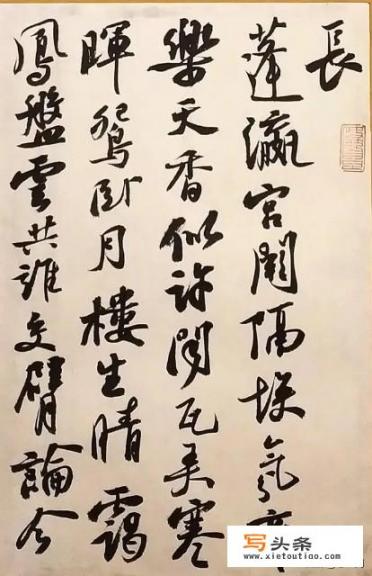 長
蓬瀛宮闕隔埃氛帝
樂天香似許聞瓦弄寒
暉鴛臥月樓生晴靄
鳳盤雲共誰交臂論今
写头条
www.xietoutiao.com